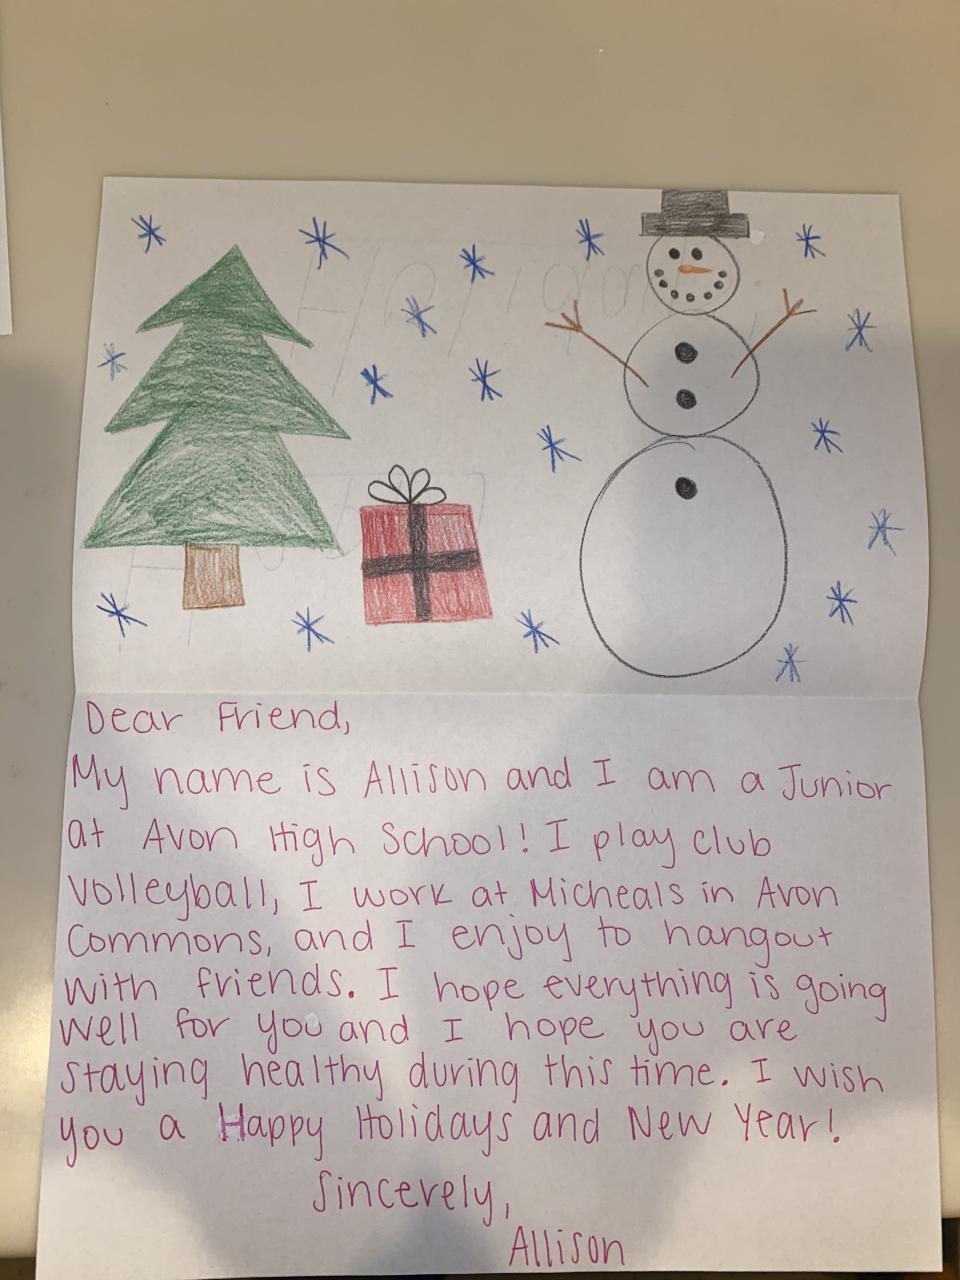 Dear Friend,
My name is Allison and I am a Junior
at Avon High School! I play club
volleyball, I work at Micheals in Avon
Commons, and I enjoy to hangout
with friends. I hope everything is going
well for you and I hope you are
staying healthy during this time. I wish
you a Happy Holidays and New Year!
Sincerely,
Allison